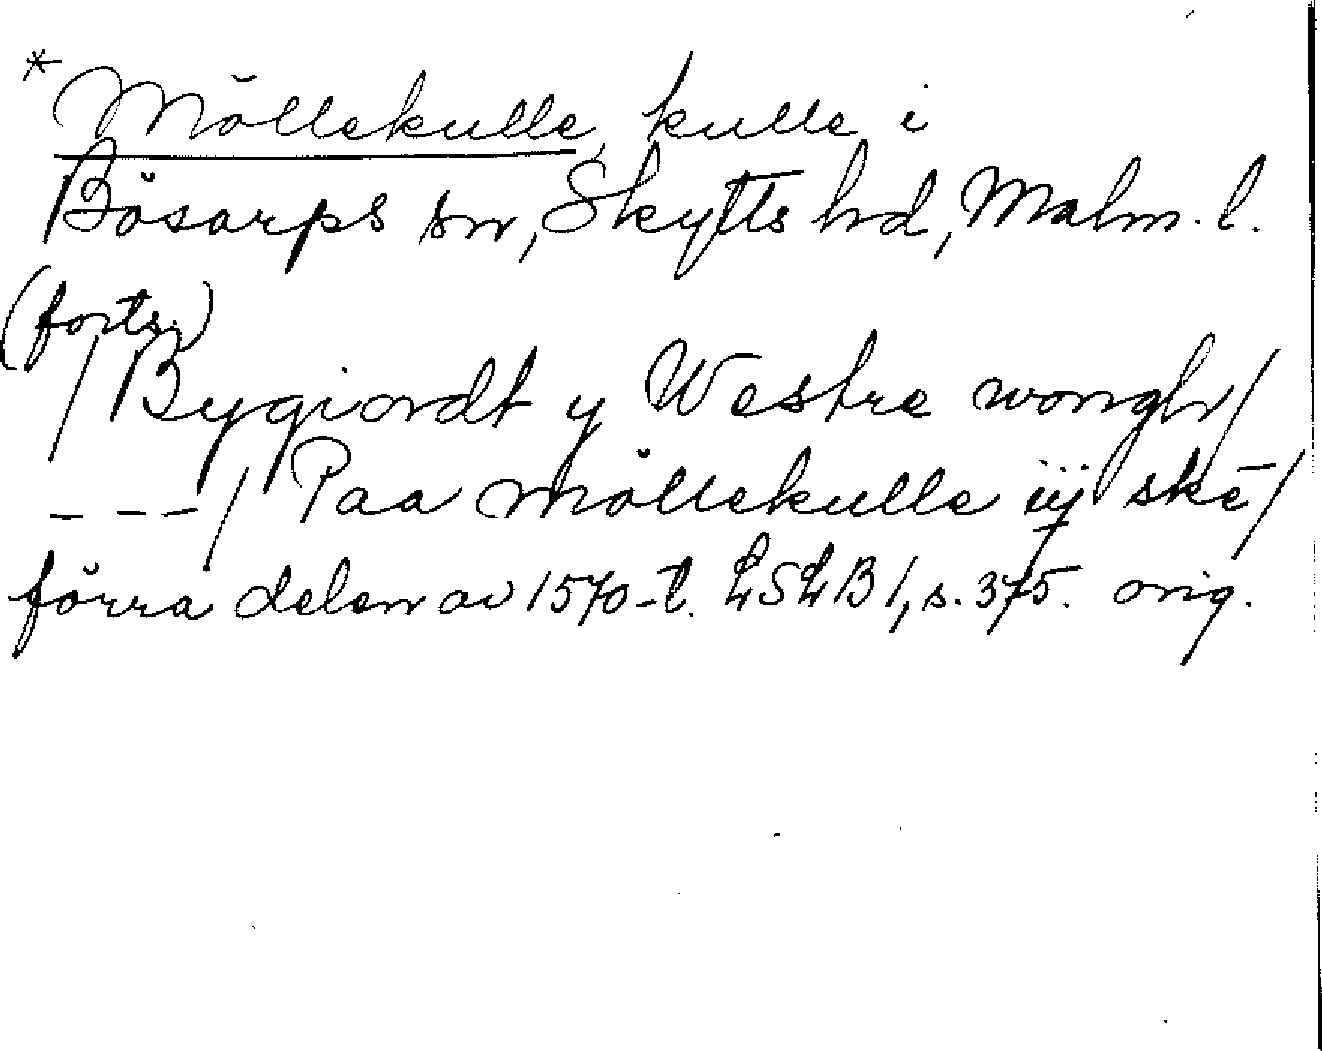 *Möllekulle, kulle i
Bösarps sn, Skytts hd, Malm. l.
(forts.)
/Bygiordt y Westre wongh/
---/ Paa möllekulle iij ske/
förra delen av 1570-t. LSLB 1, s. 375. orig.